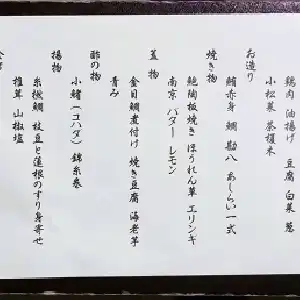 鶏肉 油揚げ 豆腐 白菜 葱
小松菜 茶榎木
お造り
鮪赤身 鯛 勘八 あしらい一式
焼き物
鮑陶板焼き ほうれん草 エリンギ
南京 バター レモン
蓋物
金目鯛煮付け 焼き豆腐 海老芋
青み
酢の物
小鰭(コハダ) 錦糸巻
揚物
糸撚鯛 枝豆と蓮根のすり身寄せ
椎茸 山椒塩